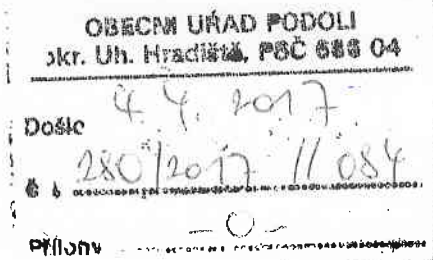 OBECNÍ ÚŘAD PODOLÍ
okr. Uh. Hradiště, PSČ 686 04
Došlo 4.4.2017
č. j. 280/2017 // 084
Přílohy -0-